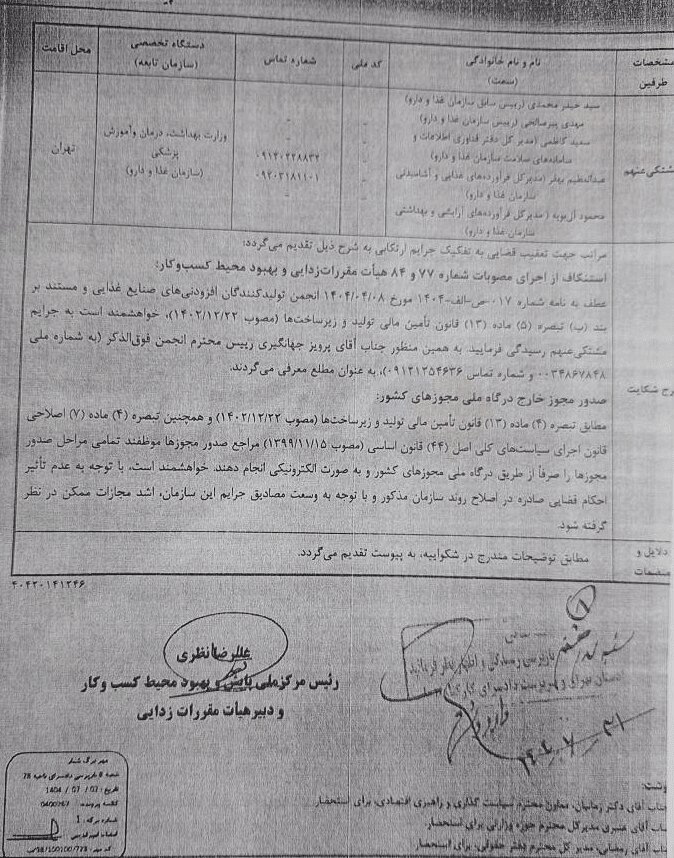 مشخصات طرفین
نام و نام خانوادگی (سمت)
کد ملی
شماره تماس
دستگاه تخصصی (سازمان تابعه)
محل اقامت
مشتکی‌عنهم
سید حیدر محمدی (رییس سابق سازمان غذا و دارو)
مهدی پیرصالحی (رییس سازمان غذا و دارو)
سعید کاظمی (مدیر کل دفتر فناوری اطلاعات و
سامانه‌های سلامت سازمان غذا و دارو)
عبدالعظیم بهفر (مدیرکل فرآورده‌های غذایی و آشامیدنی
سازمان غذا و دارو)
محمود آل‌بویه (مدیرکل فرآورده‌های آرایشی و بهداشتی
سازمان غذا و دارو)
وزارت بهداشت، درمان وآموزش
پزشکی
(سازمان غذا و دارو)
تهران
مراتب جهت تعقیب قضایی به تفکیک جرایم ارتکابی به شرح ذیل تقدیم می‌گردد:
استنکاف از اجرای مصوبات شماره ۷۷ و ۸۴ هیأت مقررات‌زدایی و بهبود محیط کسب‌وکار:
عطف به نامه شماره ۰۱۷-ص-الف-۱۴۰۴ مورخ ۱۴۰۴/۰۴/۰۸ انجمن تولیدکنندگان افزودنی‌های صنایع غذایی و مستند بر
بند (ب) تبصره (۵) ماده (۱۳) قانون تأمین مالی تولید و زیرساخت‌ها (مصوب ۱۴۰۲/۱۲/۲۲)، خواهشمند است به جرایم
مشتکی‌عنهم رسیدگی فرمایید. به همین منظور جناب آقای پرویز جهانگیری رییس محترم انجمن فوق‌الذکر (به شماره ملی
۰۰۳۴۸۶۷۸۴۸ و شماره تماس ۰۹۱۲۱۲۵۴۶۳۶)، به عنوان مطلع معرفی می‌گردند.
صدور مجوز خارج درگاه ملی مجوزهای کشور:
شرح شکایت
مطابق تبصره (۴) ماده (۱۳) قانون تأمین مالی تولید و زیرساخت‌ها (مصوب ۱۴۰۲/۱۲/۲۲) و همچنین تبصره (۴) ماده (۷) اصلاحی
قانون اجرای سیاست‌های کلی اصل (۴۴) قانون اساسی (مصوب ۱۳۹۹/۱۱/۱۵) مراجع صدور مجوزها موظفند تمامی مراحل صدور
مجوزها را صرفاً از طریق درگاه ملی مجوزهای کشور و به صورت الکترونیکی انجام دهند. خواهشمند است، با توجه به عدم تأثیر
احکام قضایی صادره در اصلاح روند سازمان مذکور و با توجه به وسعت مصادیق جرایم این سازمان، اشد مجازات ممکن در نظر
گرفته شود.
دلایل و منضمات
مطابق توضیحات مندرج در شکواییه، به پیوست تقدیم می‌گردد.
۴۰۴۲۰۱۴۱۲۴۶
علیرضا نظری
رئیس مرکز ملی پایش و بهبود محیط کسب و کار
و دبیر هیأت مقررات زدایی
مهر برگ شمار
شعبه 8 بازپرسی دادسرای ناحیه 28
تاریخ: 07 / 07 / 1404
شماره برگ: 1
جناب آقای دکتر زمانیان، معاون محترم سیاست گذاری و راهبری اقتصادی، برای استحضار
جناب آقای عنبری مدیرکل محترم حوزه وزارتی، برای استحضار.
جناب آقای رمضانی، مدیر کل محترم دفتر حقوقی، برای استحضار